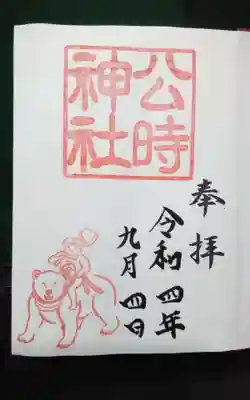 奉拝
公時
神社
令和四年
九月四日